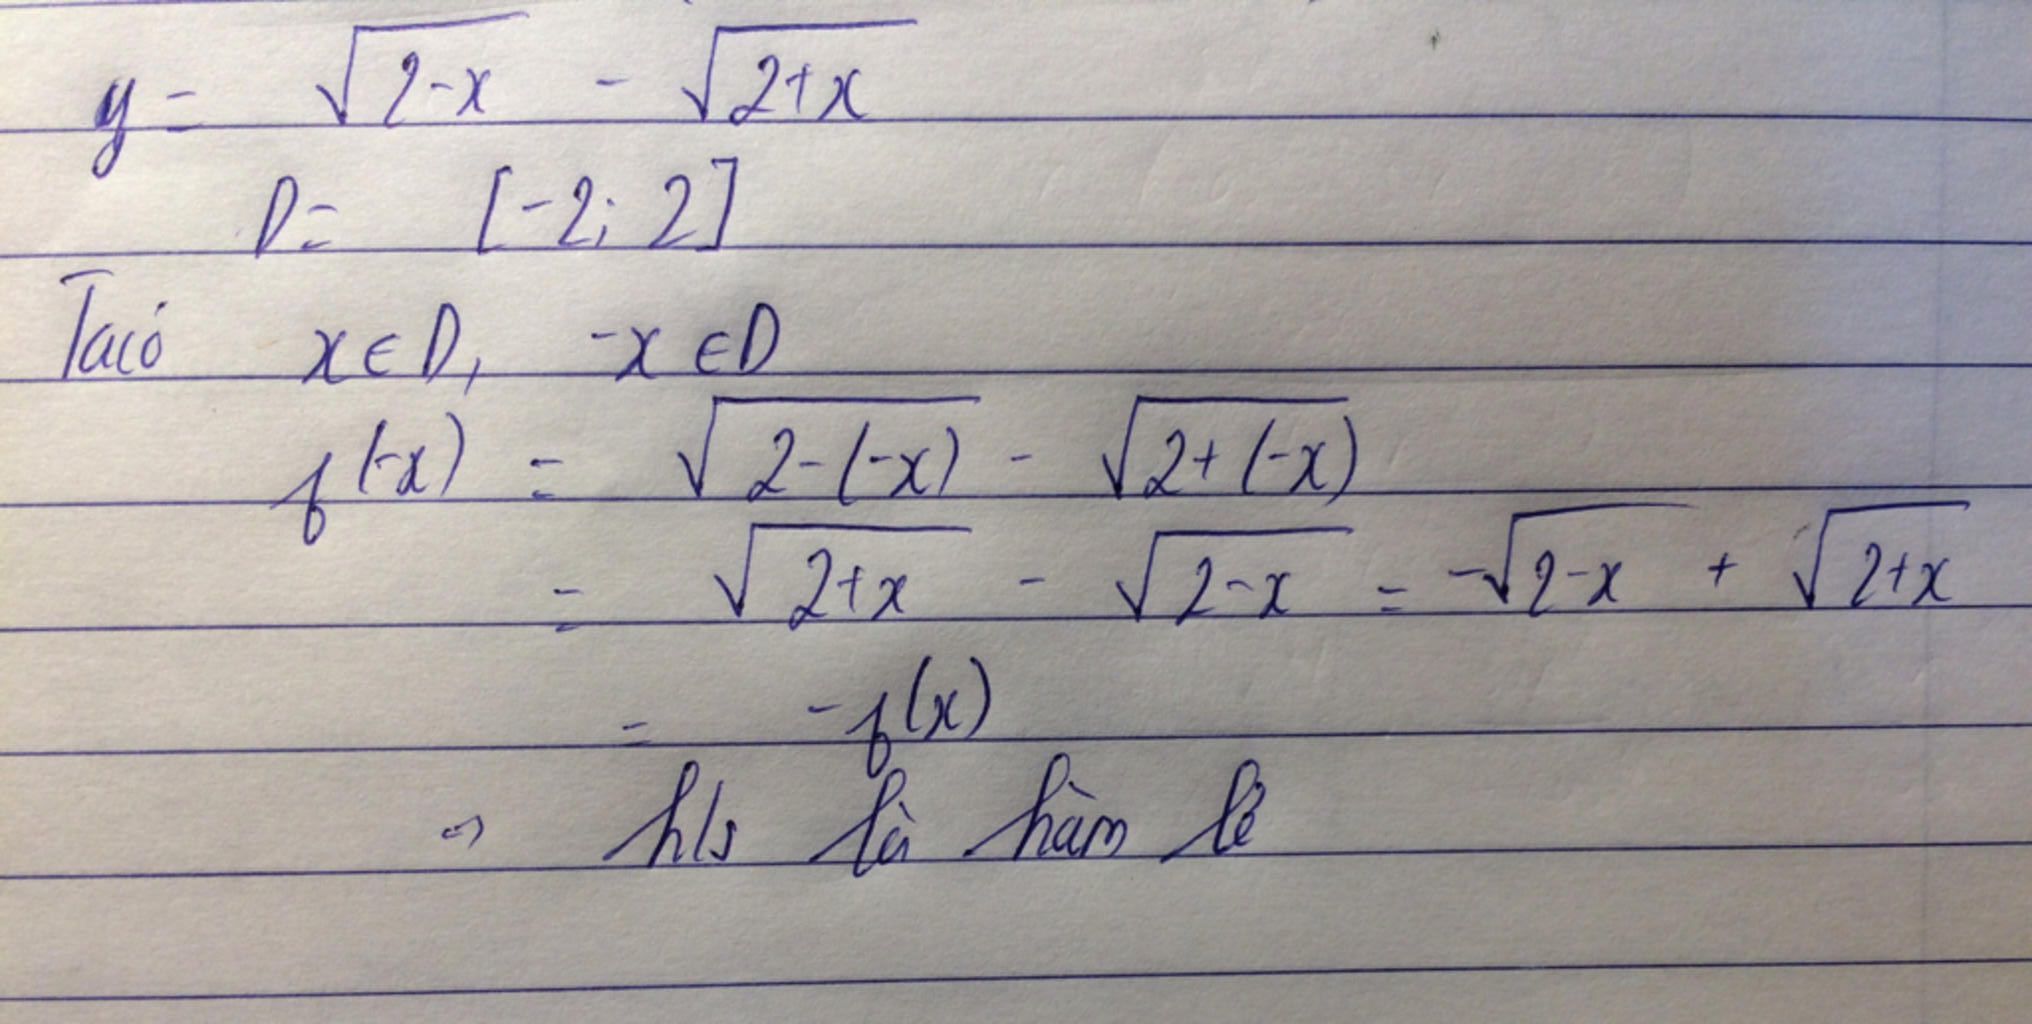 y = √(2-x) - √(2+x)
D = [-2; 2]
Ta có x ∈ D, -x ∈ D
f(-x) = √(2-(-x)) - √(2+(-x))
= √(2+x) - √(2-x) = -√(2-x) + √(2+x)
= -f(x)
⇒ h/s là hàm lẻ